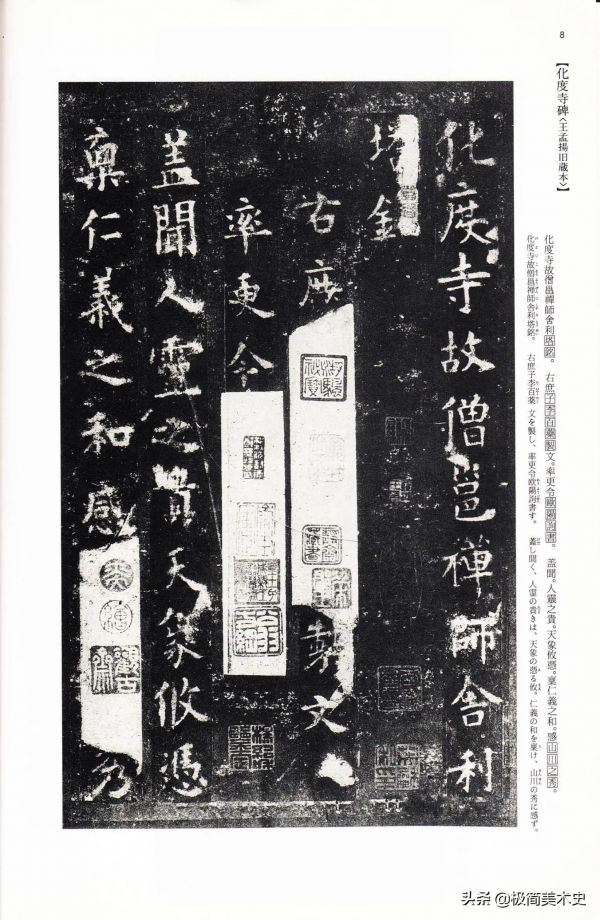 8
【化度寺碑〈王孟揚旧蔵本〉】
化度寺故僧邕禪師舍利塔銘。右庶子李百藥製文。率更令歐陽詢書。盖聞。人靈之貴。天象攸憑。稟仁義之和。感山川之秀。
化度寺故僧邕禅師舎利塔銘。右庶子李百薬 文を製し、率更令欧陽詢書す。蓋し聞く、人霊の貴きは、天象の憑る攸。仁義の和を稟け、山川の秀に感ず。
化度寺故僧邕禪師舍利
塔
右庶 製文
率更令
盖聞人靈之貴天象攸憑
稟仁義之和感
头条 @极简美术史